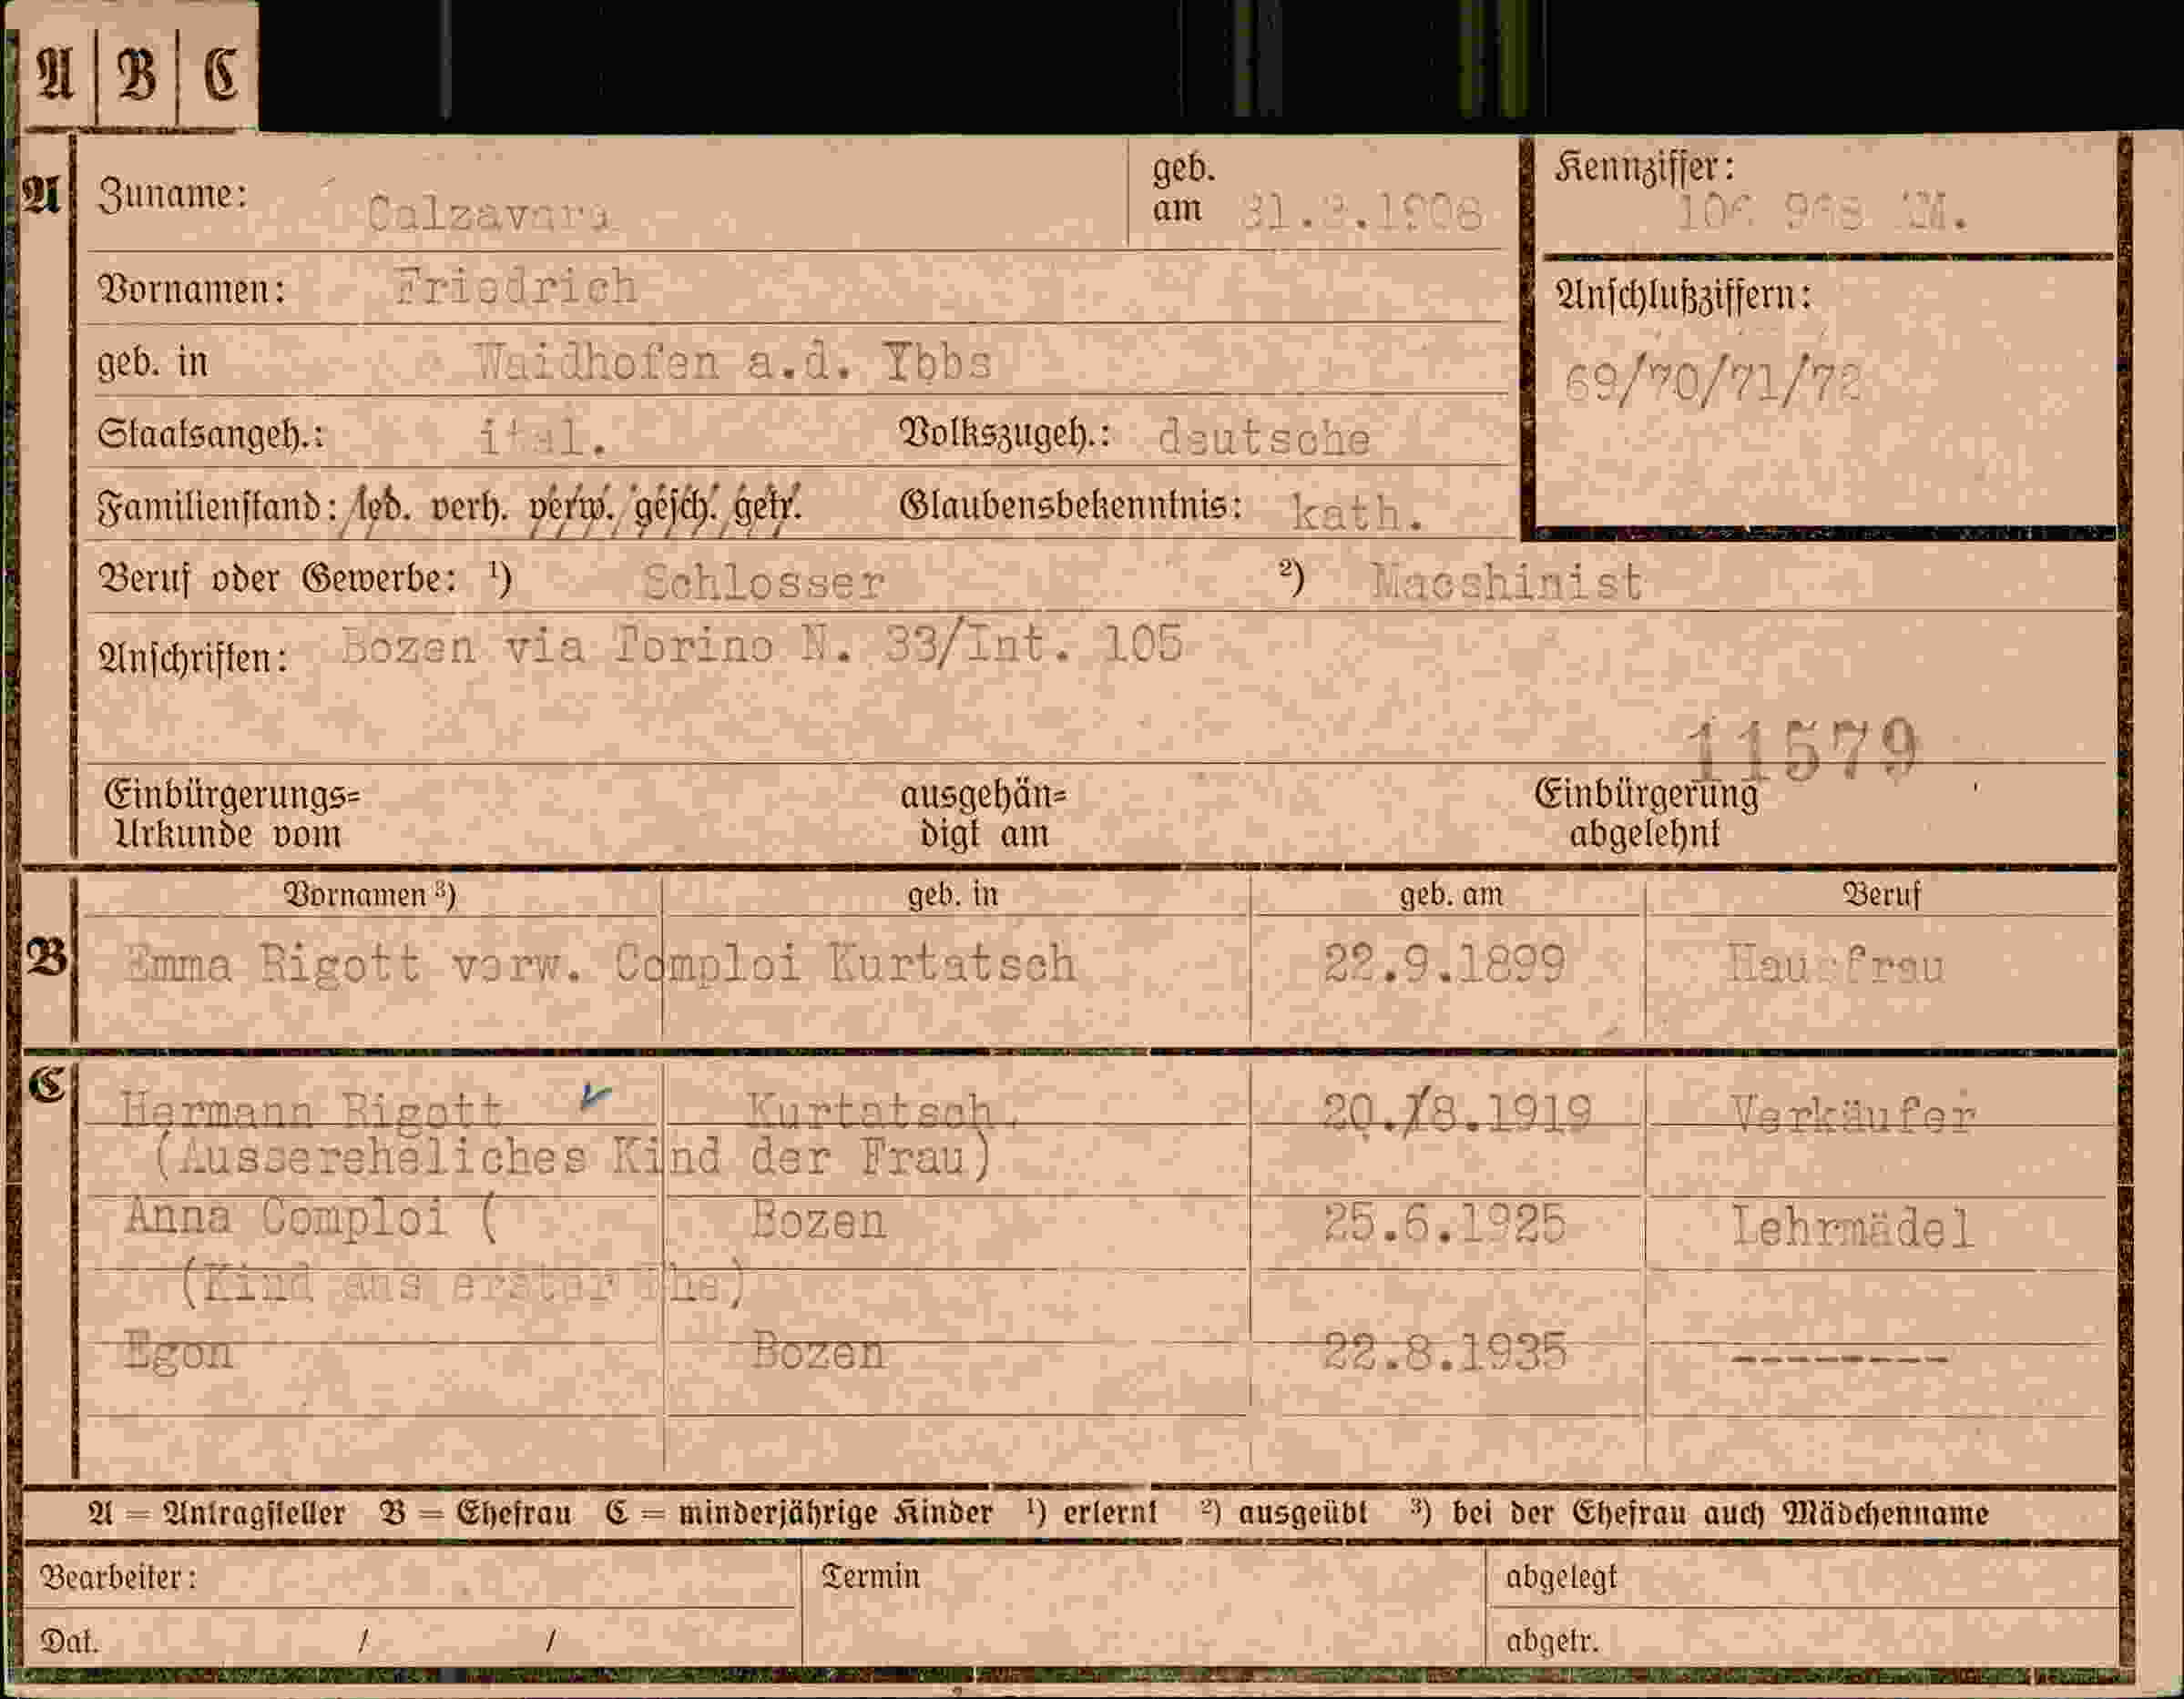 A | B | C
A Zuname: Calzavara geb. am 31.3.1908 Kennziffer:
Vornamen: Friedrich Anschlußziffern:
geb. in Waidhofen a.d. Ybbs 69/70/71/72
Staatsangeh.: ital. Volkszugeh.: deutsche
Familienstand: led. verh. verw. gesch. getr. Glaubensbekenntnis: kath.
Beruf oder Gewerbe: ¹) Schlosser ²) Maschinist
Anschriften: Bozen via Torino N. 33/Int. 105
11579
Einbürgerungs= ausgehän= Einbürgerung
Urkunde vom digt am abgelehnt
Vornamen ³) geb. in geb. am Beruf
B Emma Rigott verw. Comploi Kurtatsch 22.9.1899 Hausfrau
C Hermann Rigott Kurtatsch. 20./8.1919 Verkäufer
(Aussereheliches Kind der Frau)
Anna Comploi ( Bozen 25.6.1925 Lehrmädel
(Kind aus erster Ehe)
Egon Bozen 22.8.1935 --------
A = Antragsteller B = Ehefrau C = minderjährige Kinder ¹) erlernt ²) ausgeübt ³) bei der Ehefrau auch Mädchenname
Bearbeiter: Termin abgelegt
Dat. / / abgetr.